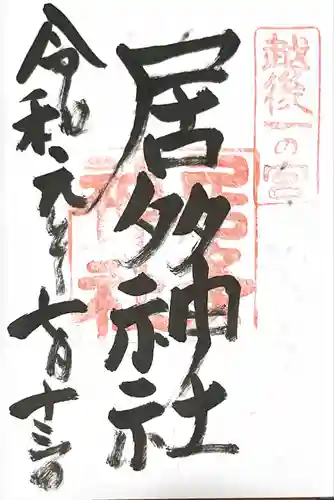 越後一の宮
居多神社
令和元年
七月十三日